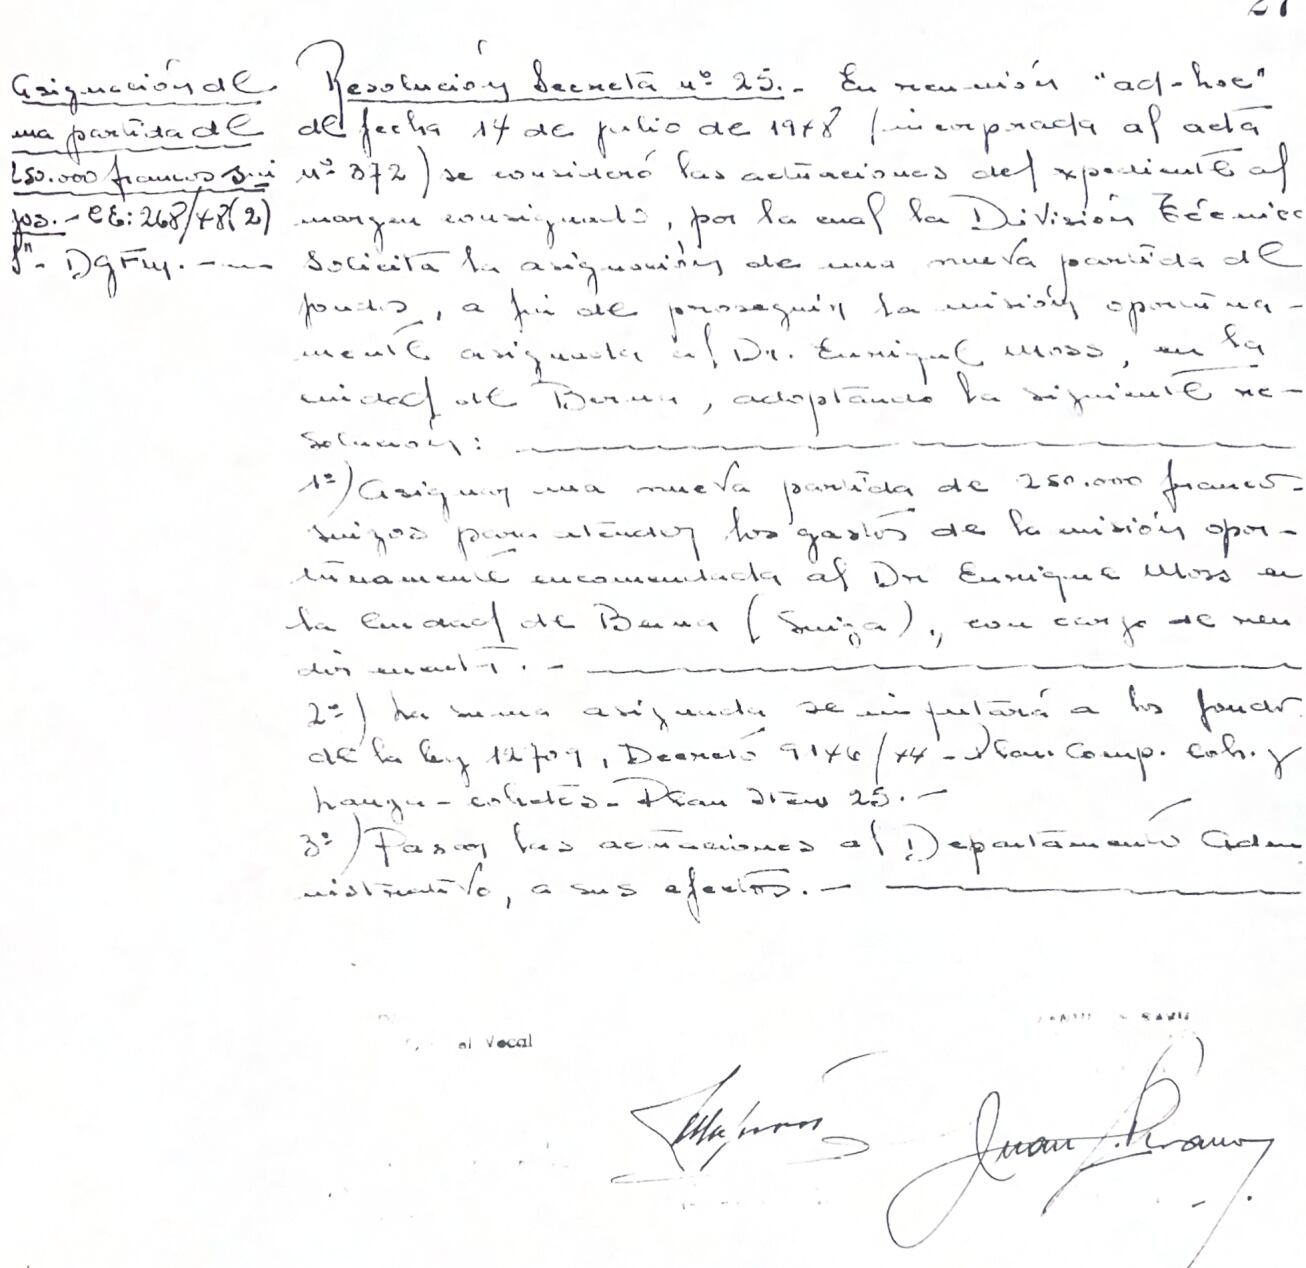 27
Asignación de
una partida de
250.000 francos sui
zos.- CE: 268/48(2)
S"- DGFM.-
Resolución Secreta nº 25.- En reunión "ad-hoc"
de fecha 14 de julio de 1948 (incorporada al acta
nº 372) se consideró las actuaciones del expediente al
margen consignado, por la cual la División Técnica
solicita la asignación de una nueva partida de
fondos, a fin de proseguir la misión oportuna-
mente asignada al Dr. Enrique Moss, en la
ciudad de Berna, adoptando la siguiente re-
solución:
1º) Asignar una nueva partida de 250.000 francos
suizos para atender los gastos de la misión opor-
tunamente encomendada al Dr Enrique Moss en
la Ciudad de Berna (Suiza), con cargo de ren
dir cuenta.-
2º) La suma asignada se imputará a los fondos
de la ley 12709, Decreto 9146/44 - Plan Comp. coh. y
cohetes - Plan Item 25.-
3º) Pasar las actuaciones al Departamento Adm
nistrativo, a sus efectos.-
al Vocal
Juan